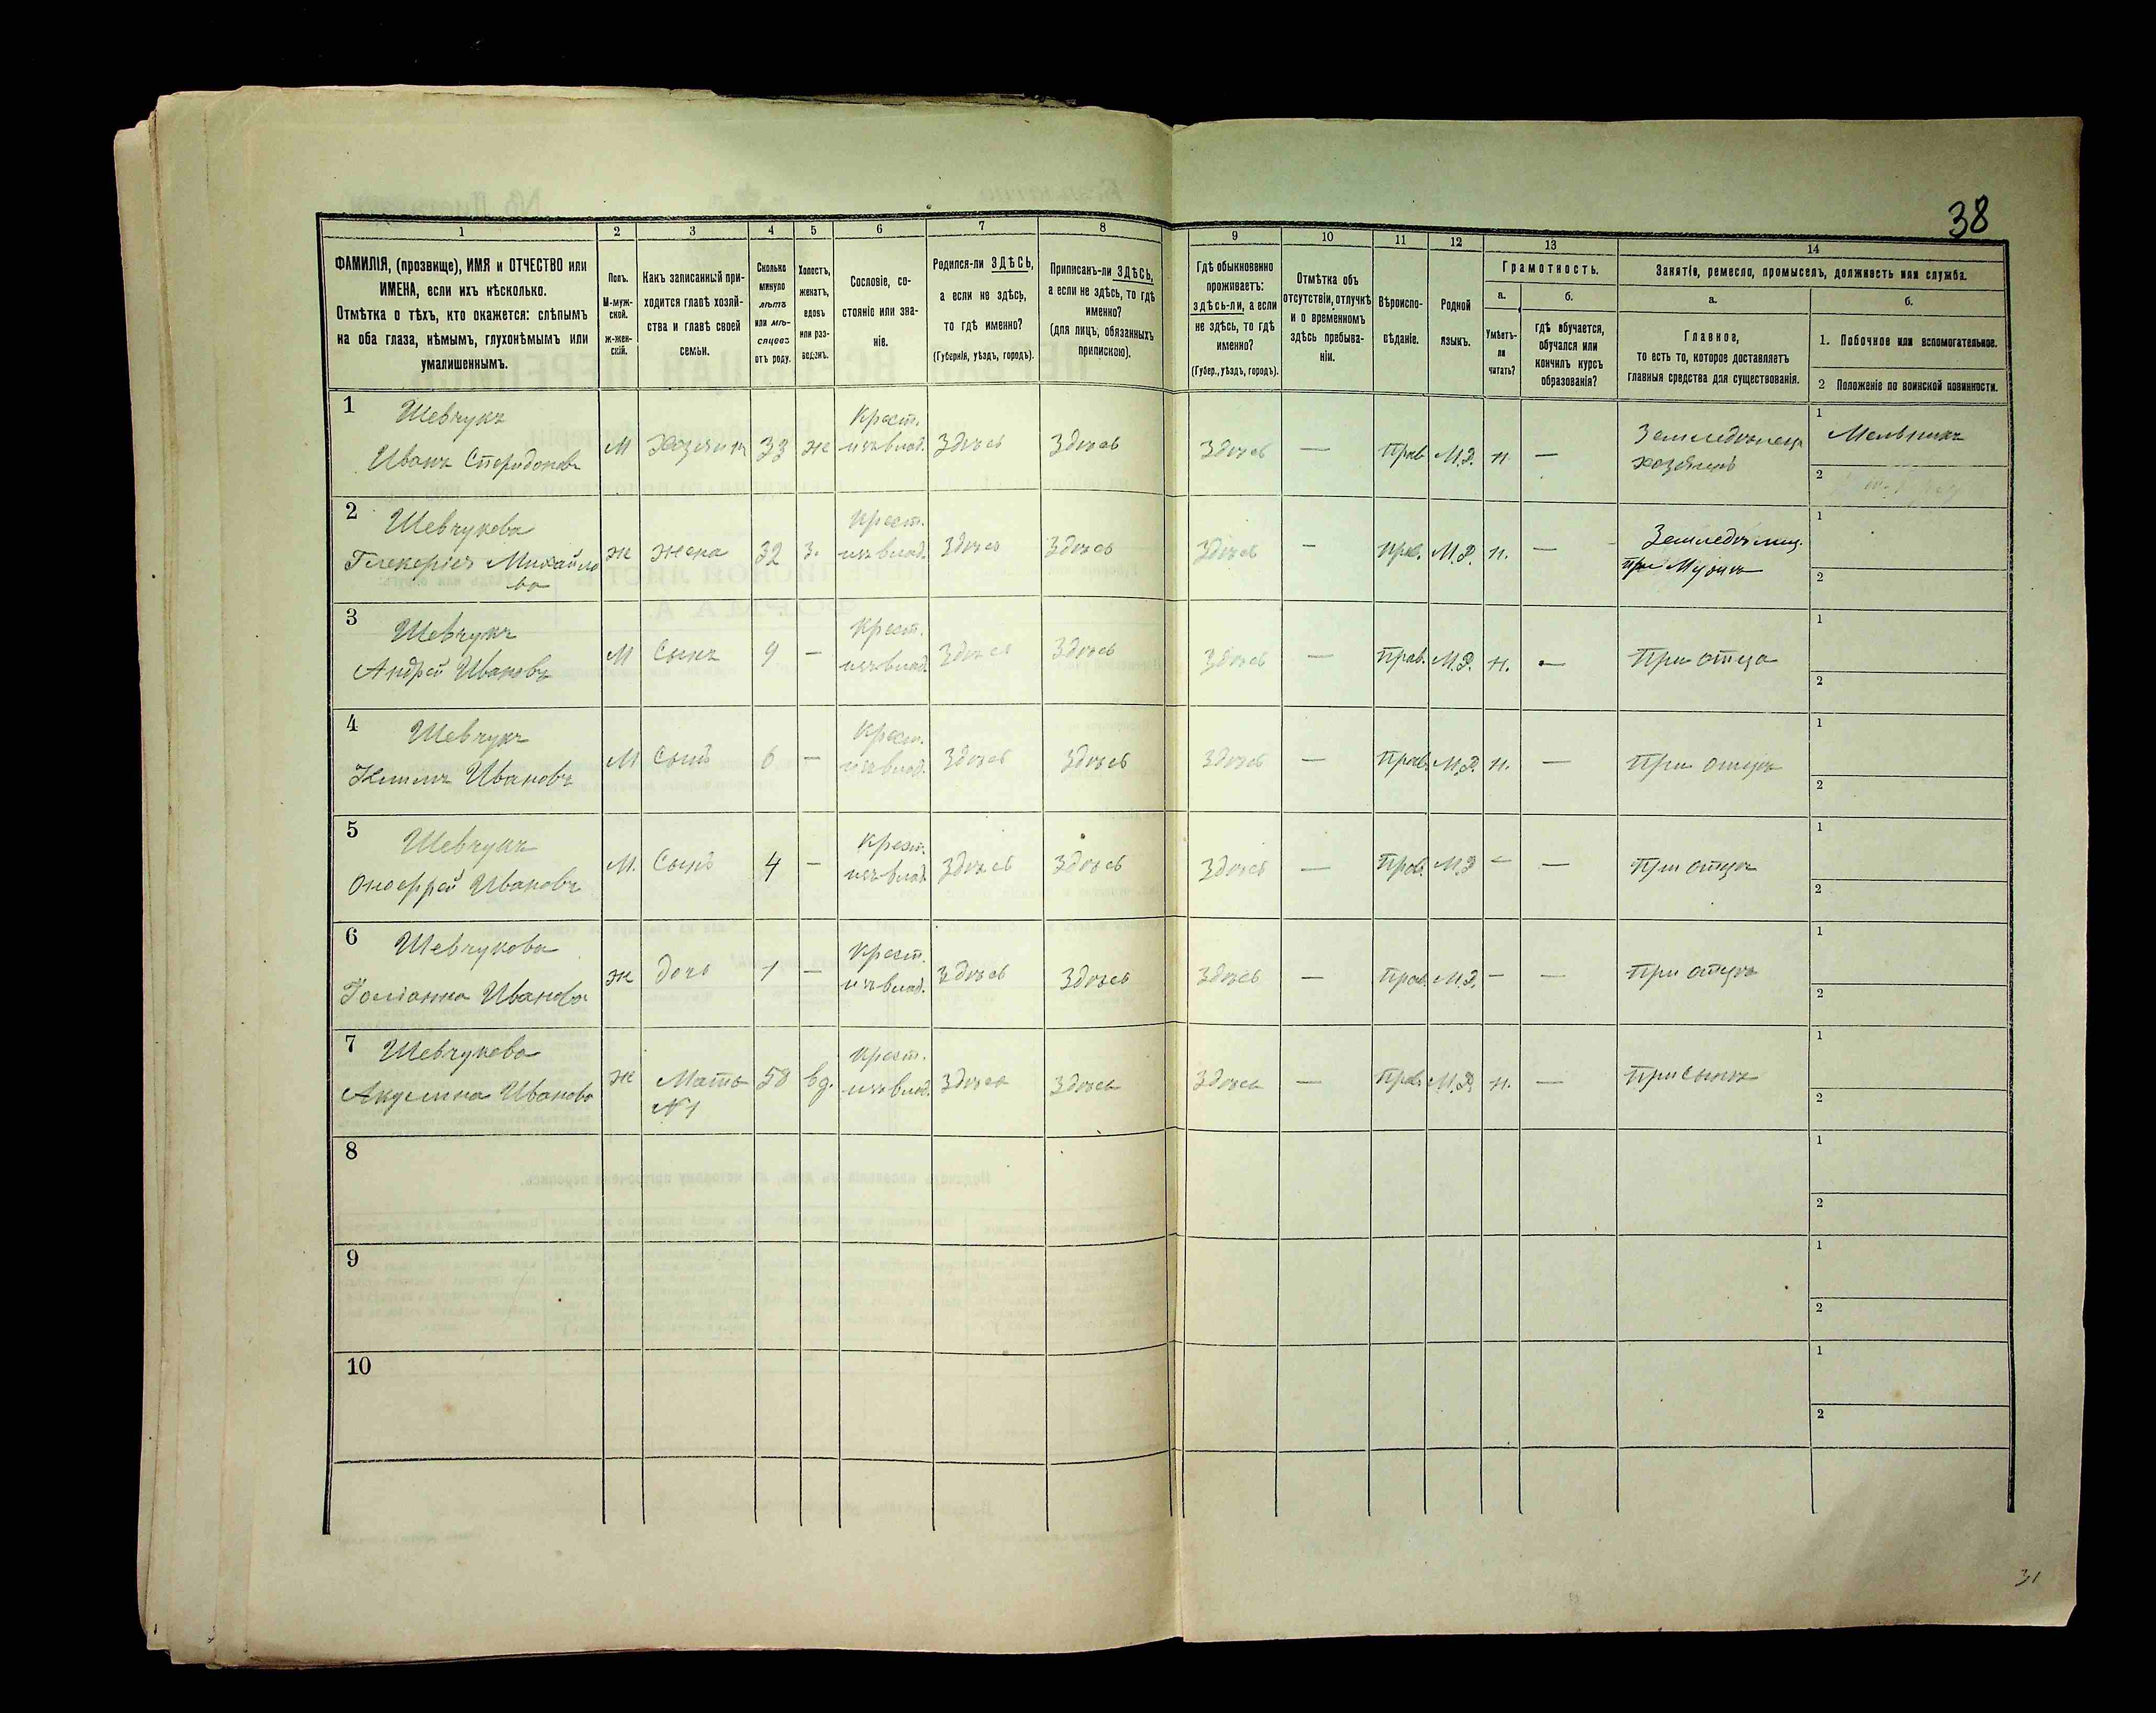 38
1 2 3 4 5 6 7 8 9 10 11 12 13 14
ФАМИЛІЯ, (прозвище), ИМЯ и ОТЧЕСТВО или
ИМЕНА, если ихъ нѣсколько.
Отмѣтка о тѣхъ, кто окажется: слѣпымъ
на оба глаза, нѣмымъ, глухонѣмымъ или
умалишеннымъ.
Полъ.
М-муж-
ской.
ж-жен-
скій.
Какъ записанный при-
ходится главѣ хозяй-
ства и главѣ своей
семьи.
Сколько
минуло
лѣтъ
или мѣ-
сяцевъ
отъ роду.
Холостъ,
женатъ,
вдовъ
или раз-
веденъ.
Сословіе, со-
стояніе или зва-
ніе.
Родился-ли ЗДѢСЬ,
а если не здѣсь,
то гдѣ именно?
(Губернія, уѣздъ, городъ).
Приписанъ-ли ЗДѢСЬ,
а если не здѣсь, то гдѣ
именно?
(для лицъ, обязанныхъ
припискою).
Гдѣ обыкновенно
проживаетъ:
здѣсь-ли, а если
не здѣсь, то гдѣ
именно?
(Губер., уѣздъ, городъ).
Отмѣтка объ
отсутствіи, отлучкѣ
и о временномъ
здѣсь пребыва-
ніи.
Вѣроиспо-
вѣданіе.
Родной
языкъ.
Грамотность.
а.
Умѣетъ-
ли
читать?
б.
гдѣ обучается,
обучался или
кончилъ курсъ
образованія?
Занятіе, ремесло, промыселъ, должность или служба.
а.
Главное,
то есть то, которое доставляетъ
главныя средства для существованія.
б.
1. Побочное или вспомогательное.
2 Положеніе по воинской повинности.
1 Шевчукъ Крест. Земледѣлецъ 1 Мельникъ
Иванъ Спиридоновъ М хозяинъ 33 ж изъ влад. Здѣсь Здѣсь Здѣсь — Прав. М.Р. н — хозяинъ 2
2 Шевчукова Крест. Земледѣлиц. 1
Гликерія Михайло
ва ж жена 32 з. изъ влад. Здѣсь Здѣсь Здѣсь — прав. М.Р. н. — при Мужѣ 2
3 Шевчукъ Крест. 1
Андрей Ивановъ М Сынъ 9 — изъ влад. Здѣсь Здѣсь Здѣсь — Прав. М.Р. н. — При отца 2
4 Шевчукъ Крест. 1
Климъ Ивановъ М Сынъ 6 — изъ влад. Здѣсь Здѣсь Здѣсь — Прав. М.Р. н. — При отцѣ 2
5 Шевчукъ Крест. 1
Оноефрей Ивановъ М. Сынъ 4 — изъ влад. Здѣсь Здѣсь Здѣсь — Прав. М.Р — — При отцѣ 2
6 Шевчукова Крест. 1
Ивано́ва ж дочь 1 — изъ влад. Здѣсь Здѣсь Здѣсь — Прав. М.Р. — — При отцѣ 2
7 Шевчукова Крест. 1
Акулина Иванова ж Мать 58 вд. изъ влад. Здѣсь Здѣсь Здѣсь — Прав. М.Р. н. — При сынѣ 2
№ 1
8 1
2
9 1
2
10 1
2
31